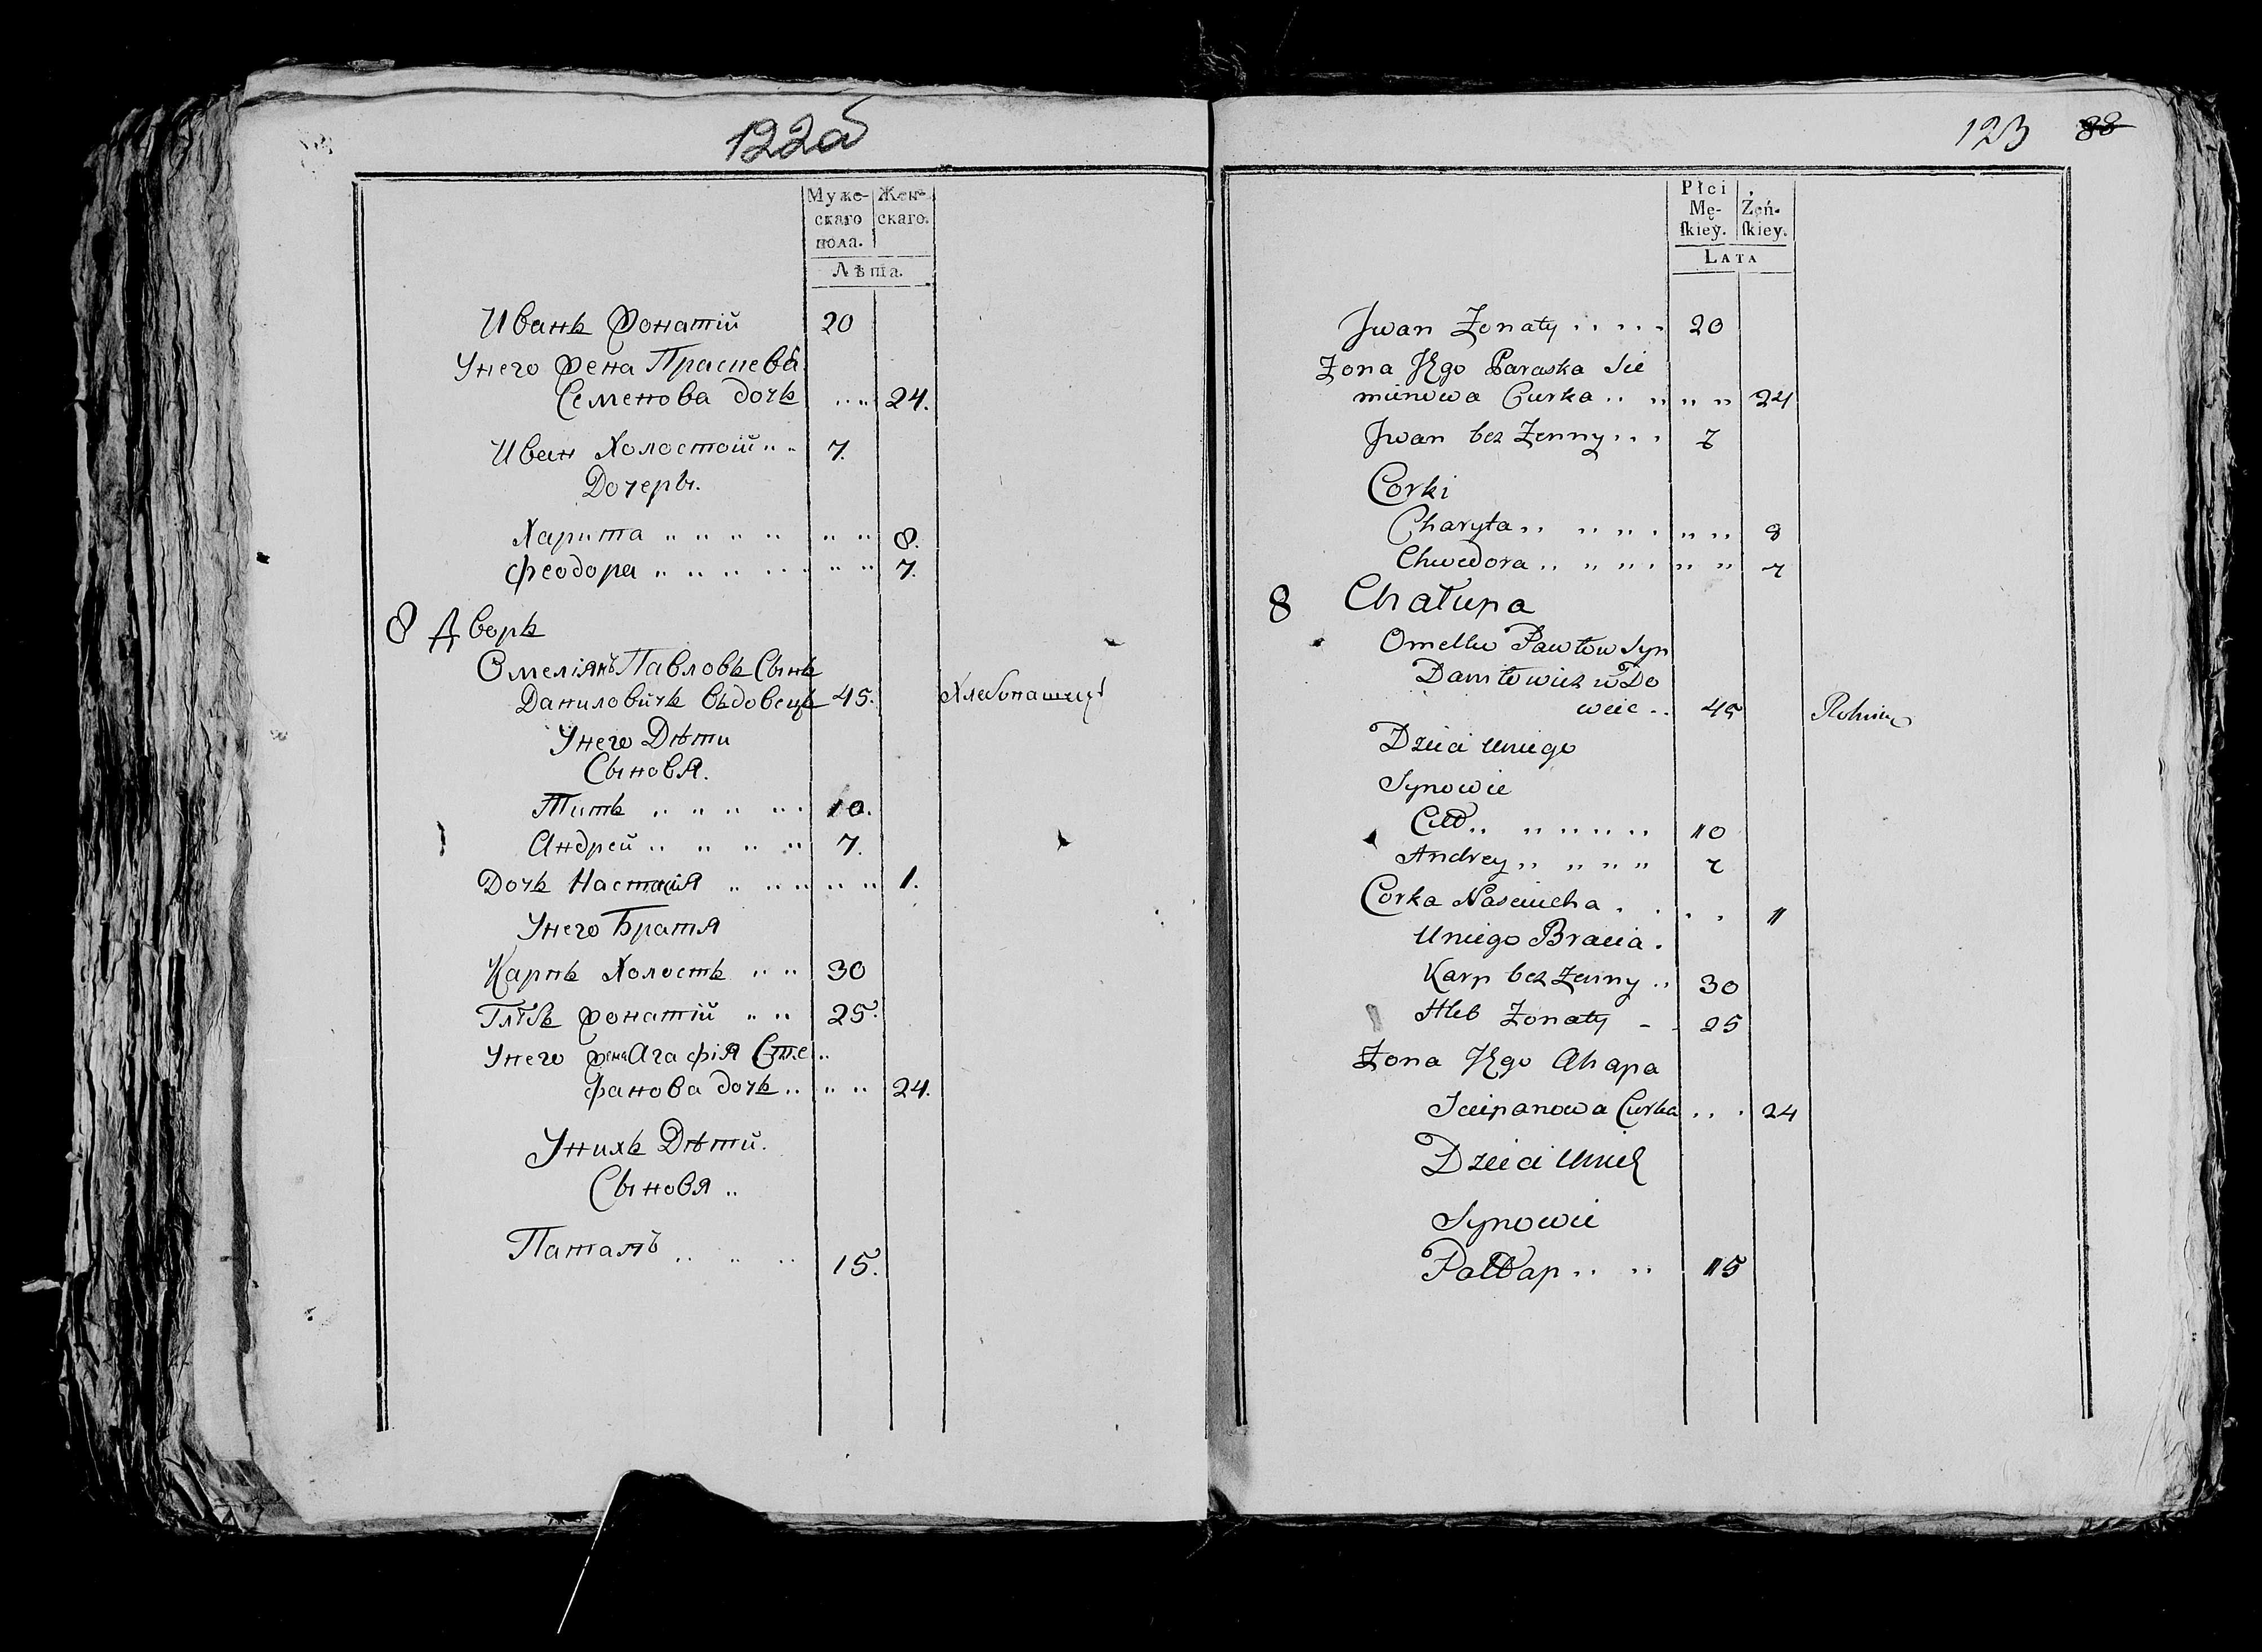 122об
Муже-
скаго
пола.
Жен-
скаго.
Лѣта.
Иванъ Жонатій 20
Унего Жена Праспева
Семенова дочь 24.
Иван Холостой 7.
Дочеры.
Харита 8.
Феодора 7.
8 Дворъ
Омеліянъ Павловъ Сынъ
Даниловичъ вдовецъ 45. Хлебопашецъ
Унего Дѣти
Сыновя.
Титъ 10.
Андрей 7.
Дочь Настасія 1.
Унего Братя
Карпъ Холостъ 30
Глѣбъ Жонатій 25.
Унего жена Агафія Сте
фанова дочь 24.
Унихъ Дѣти.
Сыновя
15.
123 88
Płci
Mę-
ſkiey.
Żeń-
ſkiey.
LATA
Jwan Żonaty 20
Żona Jego Paraska Sie
mienowa Curka 24
Jwan bez Żenny 7
Corki
Charyta 8
Chwedora 7
8 Chałupa
Omelko Pawłow Syn
Daniłowicz wDo
wiec 45 Rolnik
Dzieci uniego
Synowie
10
Andrey 7
Corka Nasciucha 1
Uniego Bracia.
Karp bez Żenny 30
Hleb Żonaty 25
Żona Jego Ahapa
Sciepanowa Curka 24
Dzieci Unich
Synowie
15